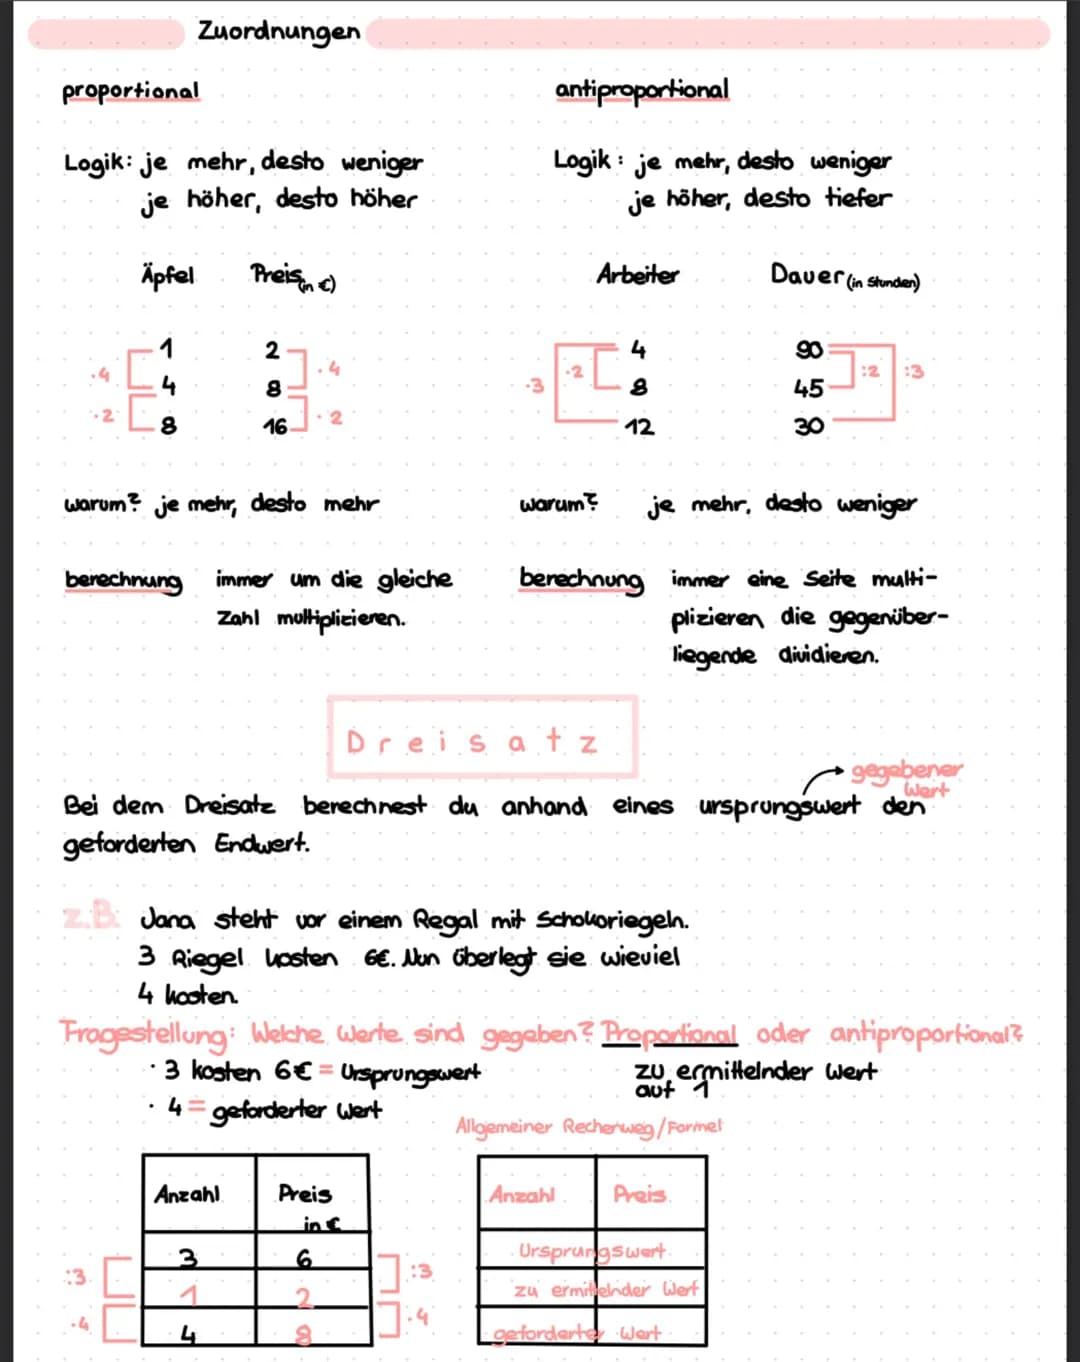 Zuordnungen
proportional
antiproportional
Logik: je mehr, desto weniger
je höher, desto höher
Logik: je mehr, desto weniger
je höher, desto tiefer
Äpfel Preis (in €)
1 2
4 8
8 16
·4 ·4
·2 ·2
Arbeiter Dauer (in Stunden)
4 90
8 45
12 30
·3 ·2 :2 :3
warum? je mehr, desto mehr
warum? je mehr, desto weniger
berechnung immer um die gleiche
Zahl multiplizieren.
berechnung immer eine Seite multi-
plizieren die gegenüber-
liegende dividieren.
Dreisatz
gegebener
Wert
Bei dem Dreisatz berechnest du anhand eines ursprungswert den
geforderten Endwert.
z.B. Jana steht vor einem Regal mit Schokoriegeln.
3 Riegel kosten 6€. Nun überlegt sie wieviel
4 kosten.
Fragestellung: Welche Werte sind gegeben? Proportional oder antiproportional?
· 3 kosten 6€ = Ursprungswert
· 4 = geforderter Wert
zu ermittelnder Wert
auf 1
Allgemeiner Rechenweg/Formel
Anzahl Preis
in €
3 6
1 2
4 8
:3 :3
·4 ·4
Anzahl Preis
Ursprungswert
zu ermittelnder Wert
geforderter Wert